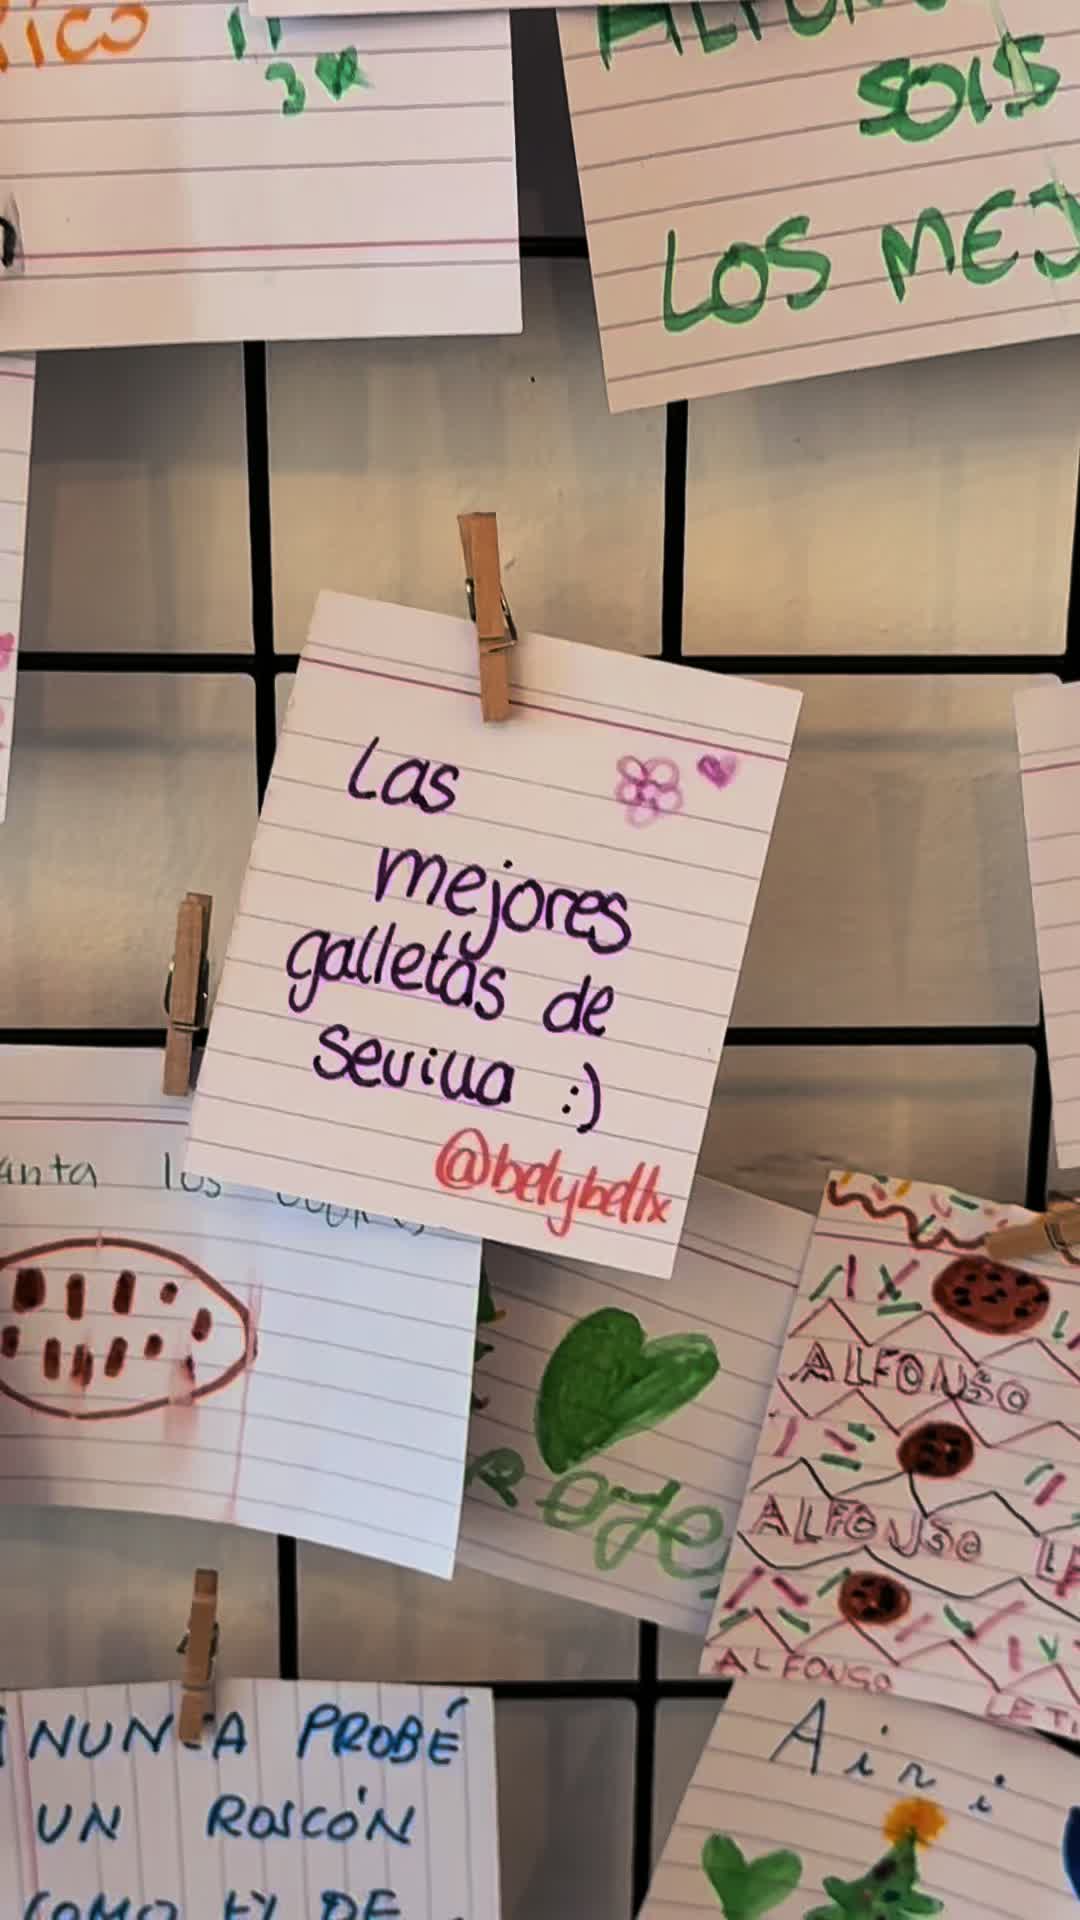 ALFONSO
SOIS
LOS MEJ
Las
mejores
galletas de
Sevilla :)
@belybellx
anta los
ALFONSO
ALFONSO
ALFONSO
LETI
¡NUNCA PROBÉ
UN ROSCÓN
COMO EL DE
Airi